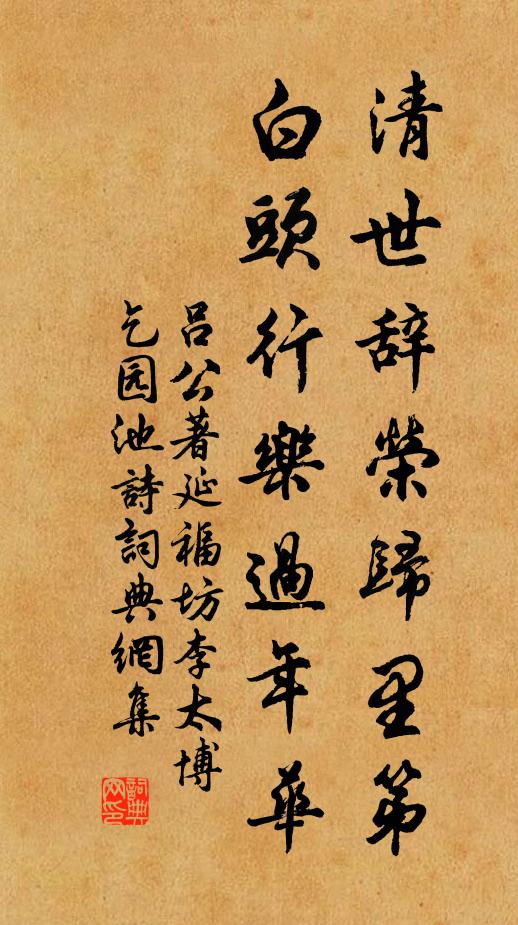 清世辞榮歸里第
白頭行樂過年華
吕公著延福坊李太博
乞园池詩詞典網集
詞典网印